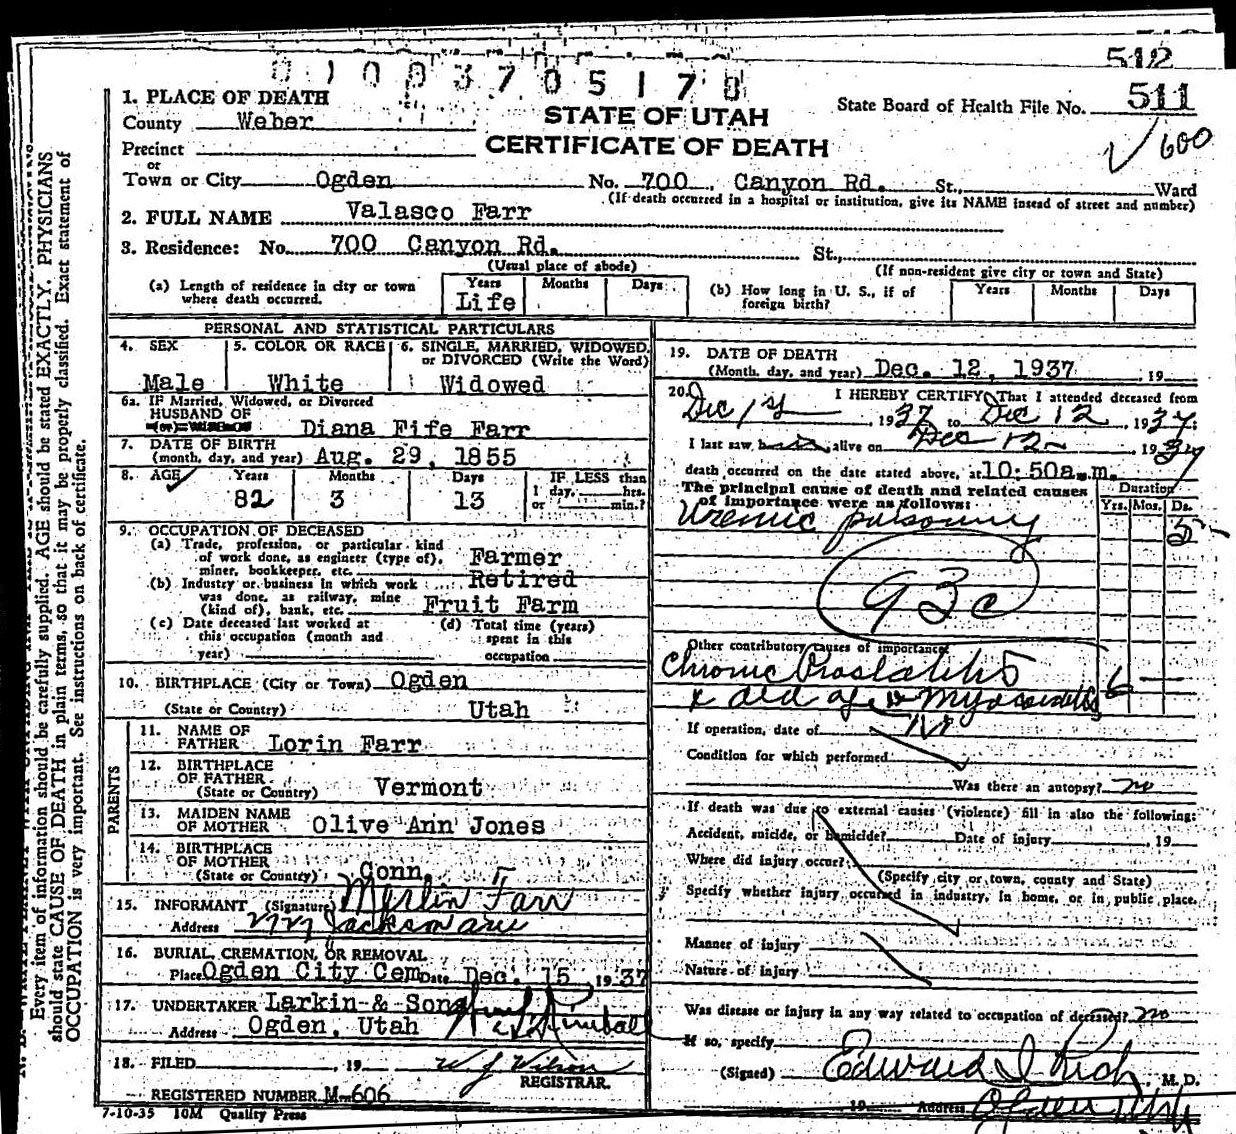 512
0 1 0 0 3 7 0 5 1 7 8
1. PLACE OF DEATH
STATE OF UTAH
CERTIFICATE OF DEATH
State Board of Health File No. 511
County Weber
600
Precinct
or
Town or City Ogden No. 700 Canyon Rd. St., Ward
(If death occurred in a hospital or institution, give its NAME insead of street and number)
2. FULL NAME Valasco Farr
3. Residence: No. 700 Canyon Rd. St.,
(Usual place of abode) (If non-resident give city or town and State)
(a) Length of residence in city or town where death occurred. Years Life Months Days
(b) How long in U. S., if of foreign birth? Years Months Days
PERSONAL AND STATISTICAL PARTICULARS
4. SEX Male
5. COLOR OR RACE White
6. SINGLE, MARRIED, WIDOWED, or DIVORCED (Write the Word) Widowed
6a. IF Married, Widowed, or Divorced
HUSBAND OF
(or) WIFE OF Diana Fife Farr
7. DATE OF BIRTH
(month, day, and year) Aug. 29, 1855
8. AGE Years 82 Months 3 Days 13
IF LESS than
1 day, hrs.
or min.?
9. OCCUPATION OF DECEASED
(a) Trade, profession, or particular kind
of work done, as engineer (type of), Farmer
miner, bookkeeper, etc. Retired
(b) Industry or business in which work
was done, as railway, mine
(kind of), bank, etc. Fruit Farm
(c) Date deceased last worked at
this occupation (month and
year)
(d) Total time (years)
spent in this
occupation
10. BIRTHPLACE (City or Town) Ogden
(State or Country) Utah
PARENTS
11. NAME OF
FATHER Lorin Farr
12. BIRTHPLACE
OF FATHER
(State or Country) Vermont
13. MAIDEN NAME
OF MOTHER Olive Ann Jones
14. BIRTHPLACE
OF MOTHER
(State or Country) Conn.
15. INFORMANT (Signature) Merlin Farr
Address Jackson ave
16. BURIAL, CREMATION, OR REMOVAL
Place Ogden City Cem Date Dec. 15, 1937
17. UNDERTAKER Larkin & Sons
Address Ogden, Utah
Kimball
18. FILED , 19 W J Wilson
REGISTRAR.
REGISTERED NUMBER M-606
7-10-35 10M Quality Press
19. DATE OF DEATH
(Month, day, and year) Dec. 12, 1937 , 19
20. I HEREBY CERTIFY, That I attended deceased from
Dec 1st , 1937 to Dec 12 , 1937;
I last saw h alive on Dec 12 , 1937
death occurred on the date stated above, at 10:50a.m.
The principal cause of death and related causes
of importance were as follows:
Duration
Yrs. Mos. Ds.
Uremic poisoning 5
93c
Other contributory causes of importance:
Chronic Prostatitis 6
Myocarditis
If operation, date of No
Condition for which performed
Was there an autopsy? no
If death was due to external causes (violence) fill in also the following:
Accident, suicide, or homicide? Date of injury , 19
Where did injury occur?
(Specify city or town, county and State)
Specify whether injury occurred in industry, in home, or in public place.
Manner of injury
Nature of injury
Was disease or injury in any way related to occupation of deceased? no
If so, specify
(Signed) Edward I Rich M. D.
19 Address Ogden Utah
Every item of information should be carefully supplied. AGE should be stated EXACTLY. PHYSICIANS
should state CAUSE OF DEATH in plain terms, so that it may be properly classified. Exact statement of
OCCUPATION is very important. See instructions on back of certificate.